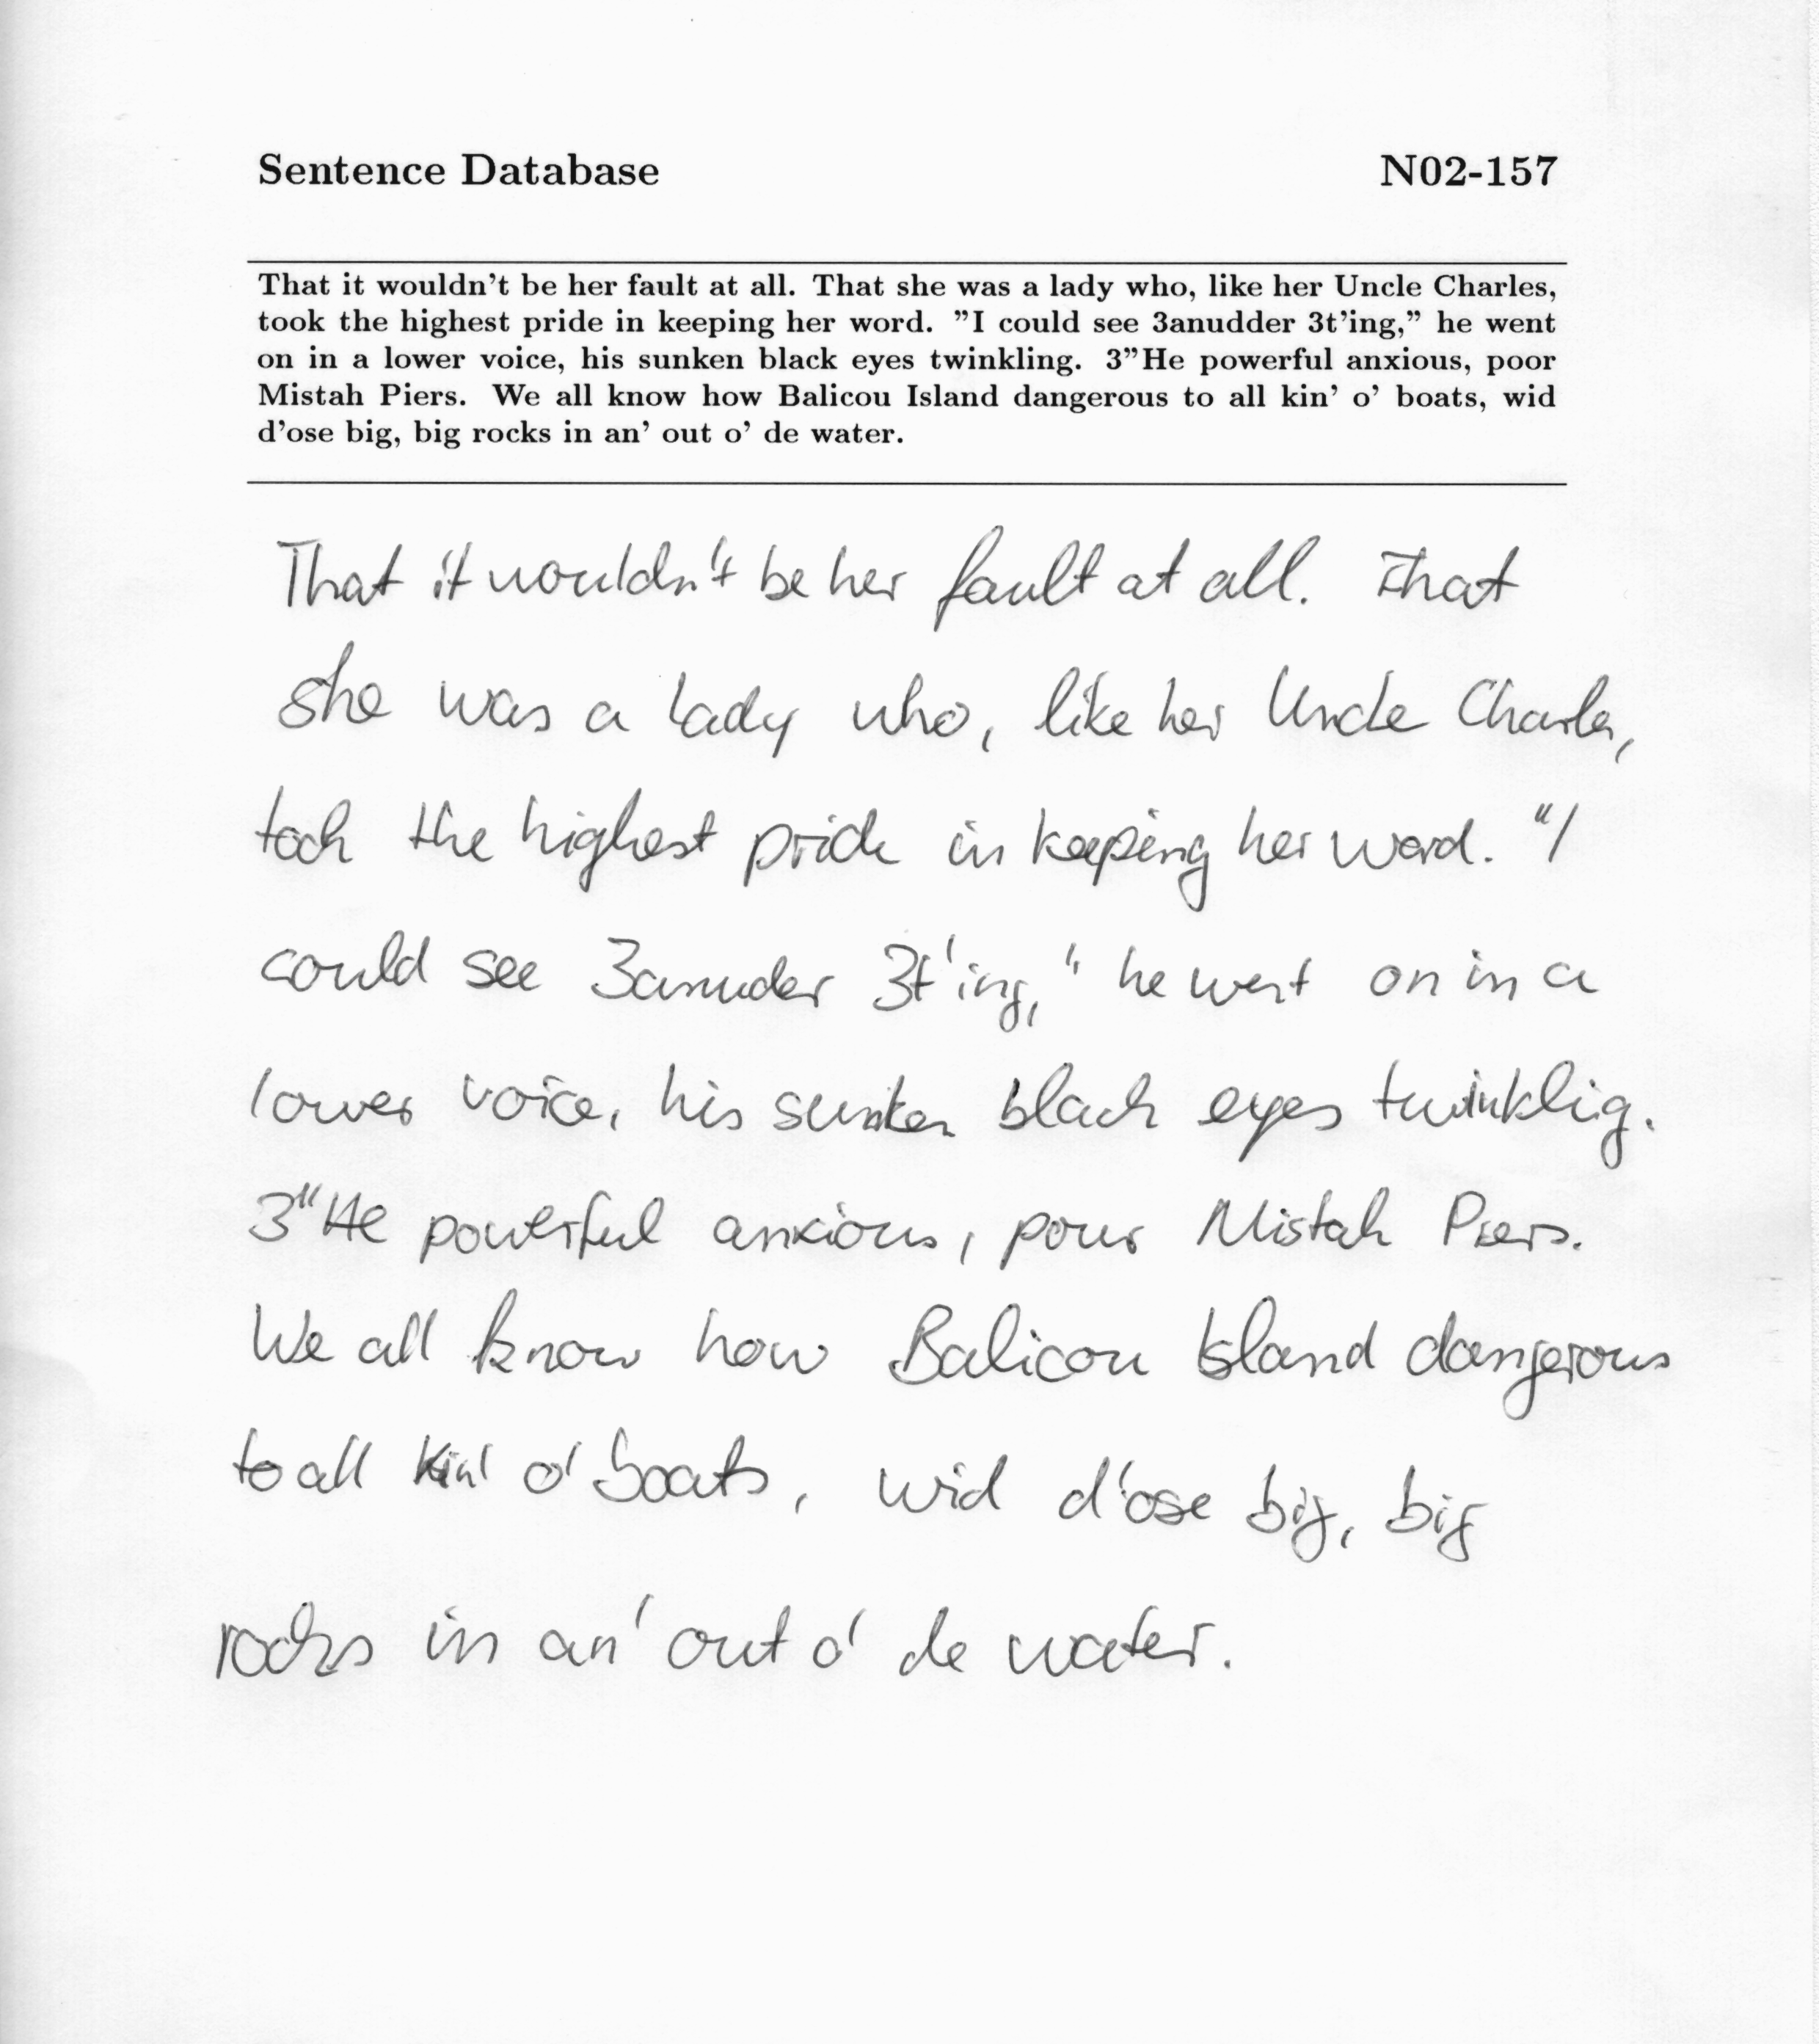 Sentence Database N02-157
That it wouldn't be her fault at all. That she was a lady who, like her Uncle Charles,
took the highest pride in keeping her word. "I could see 3anudder 3t'ing," he went
on in a lower voice, his sunken black eyes twinkling. 3"He powerful anxious, poor
Mistah Piers. We all know how Balicou Island dangerous to all kin' o' boats, wid
d'ose big, big rocks in an' out o' de water.
That it wouldn't be her fault at all. That
she was a lady who, like her Uncle Charles,
took the highest pride in keeping her word. "I
could see 3anuder 3t'ing," he went on in a
lower voice, his sunken black eyes twinklig.
3"He powerful anxious, pour Mistah Piers.
We all know how Balicou Island dangerous
to all kin' o' boats, wid d'ose big, big
rocks in an' out o' de water.